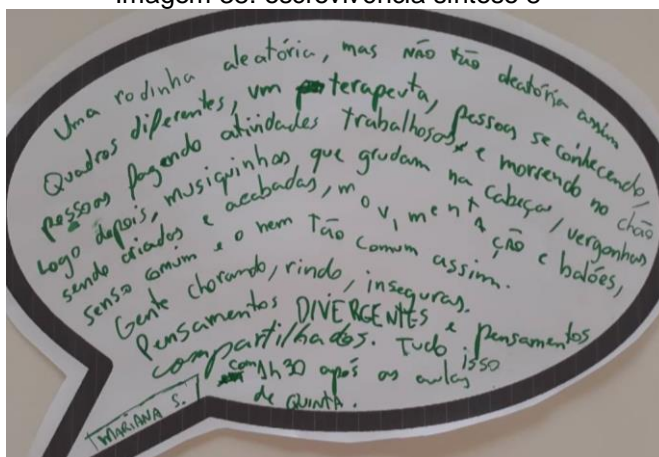 Imagem 38: escrevivência síntese 8
Uma rodinha aleatória, mas não tão aleatória assim
Quadros diferentes, um terapeuta, pessoas se conhecendo,
pessoas fazendo atividades trabalhosas e morrendo no chão
Logo depois, musiquinhas que grudam na cabeça, vergonhas
sendo criadas e acabadas, movimentação e balões,
senso comum e o nem tão comum assim.
Gente chorando, rindo, inseguras.
Pensamentos DIVERGENTES e pensamentos
compartilhados. Tudo isso
com 1h30 após as aulas
de QUINTA.
MARIANA S.